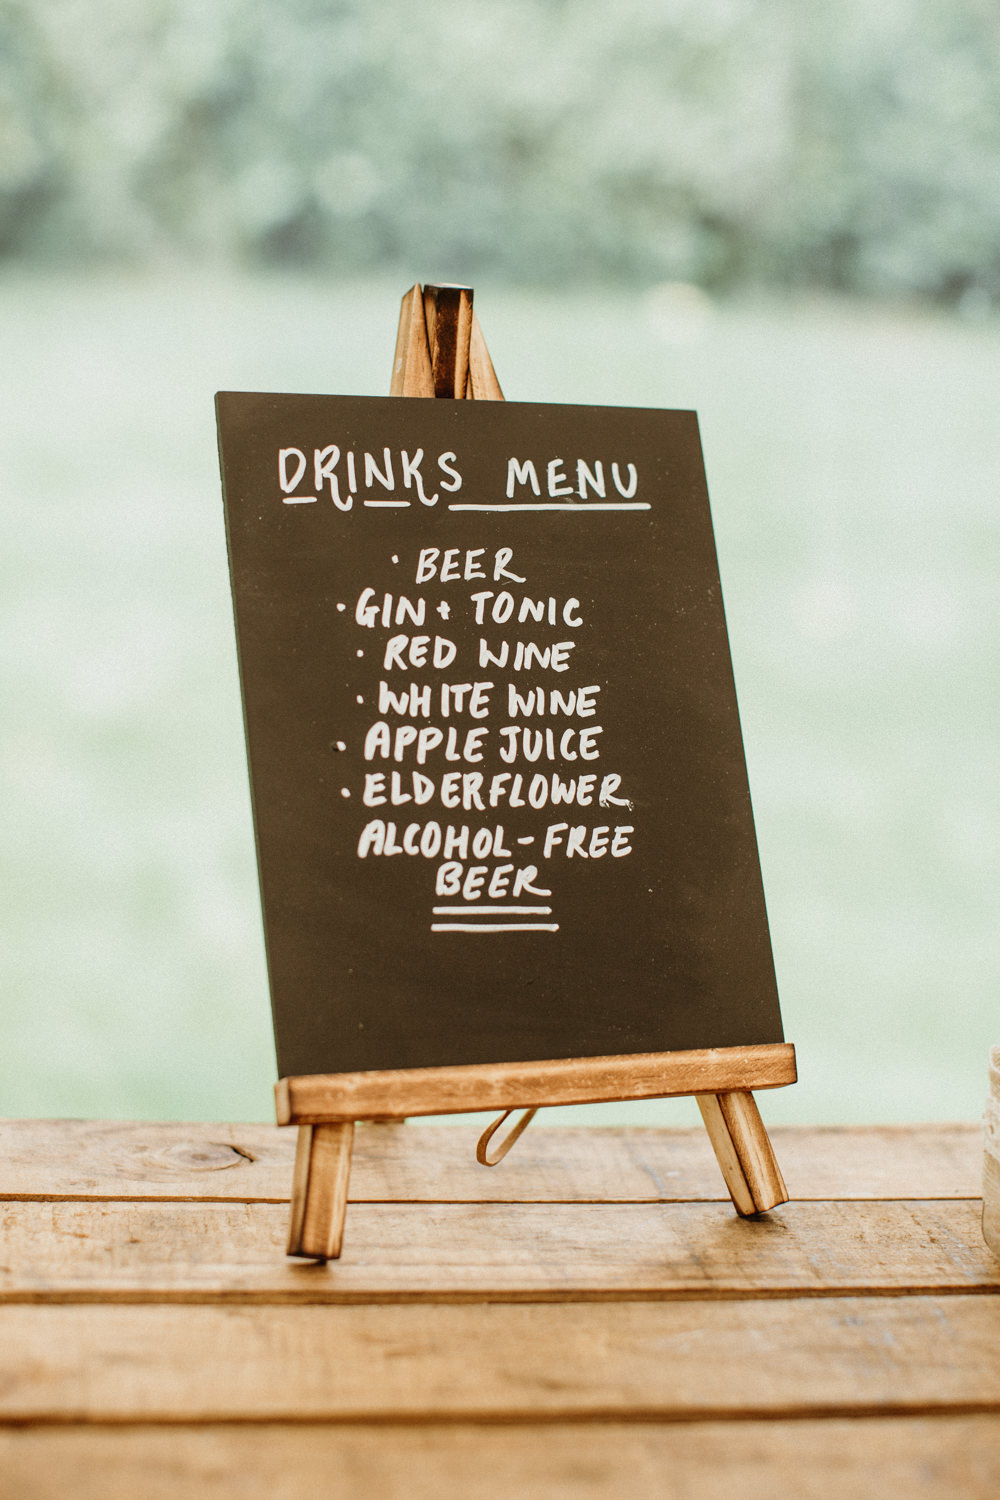 DRINKS MENU
· BEER
· GIN + TONIC
· RED WINE
· WHITE WINE
· APPLE JUICE
· ELDERFLOWER
ALCOHOL-FREE
BEER